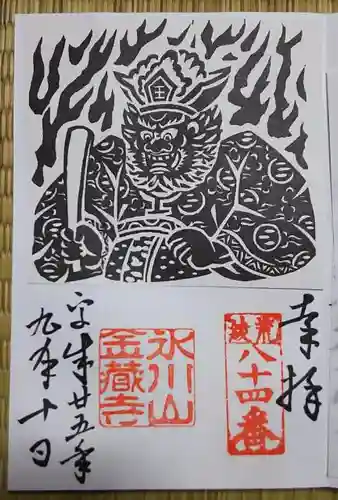 王
奉拝
荒綾
八十四番
氷川山
金蔵寺
平成廿五年
九月十日